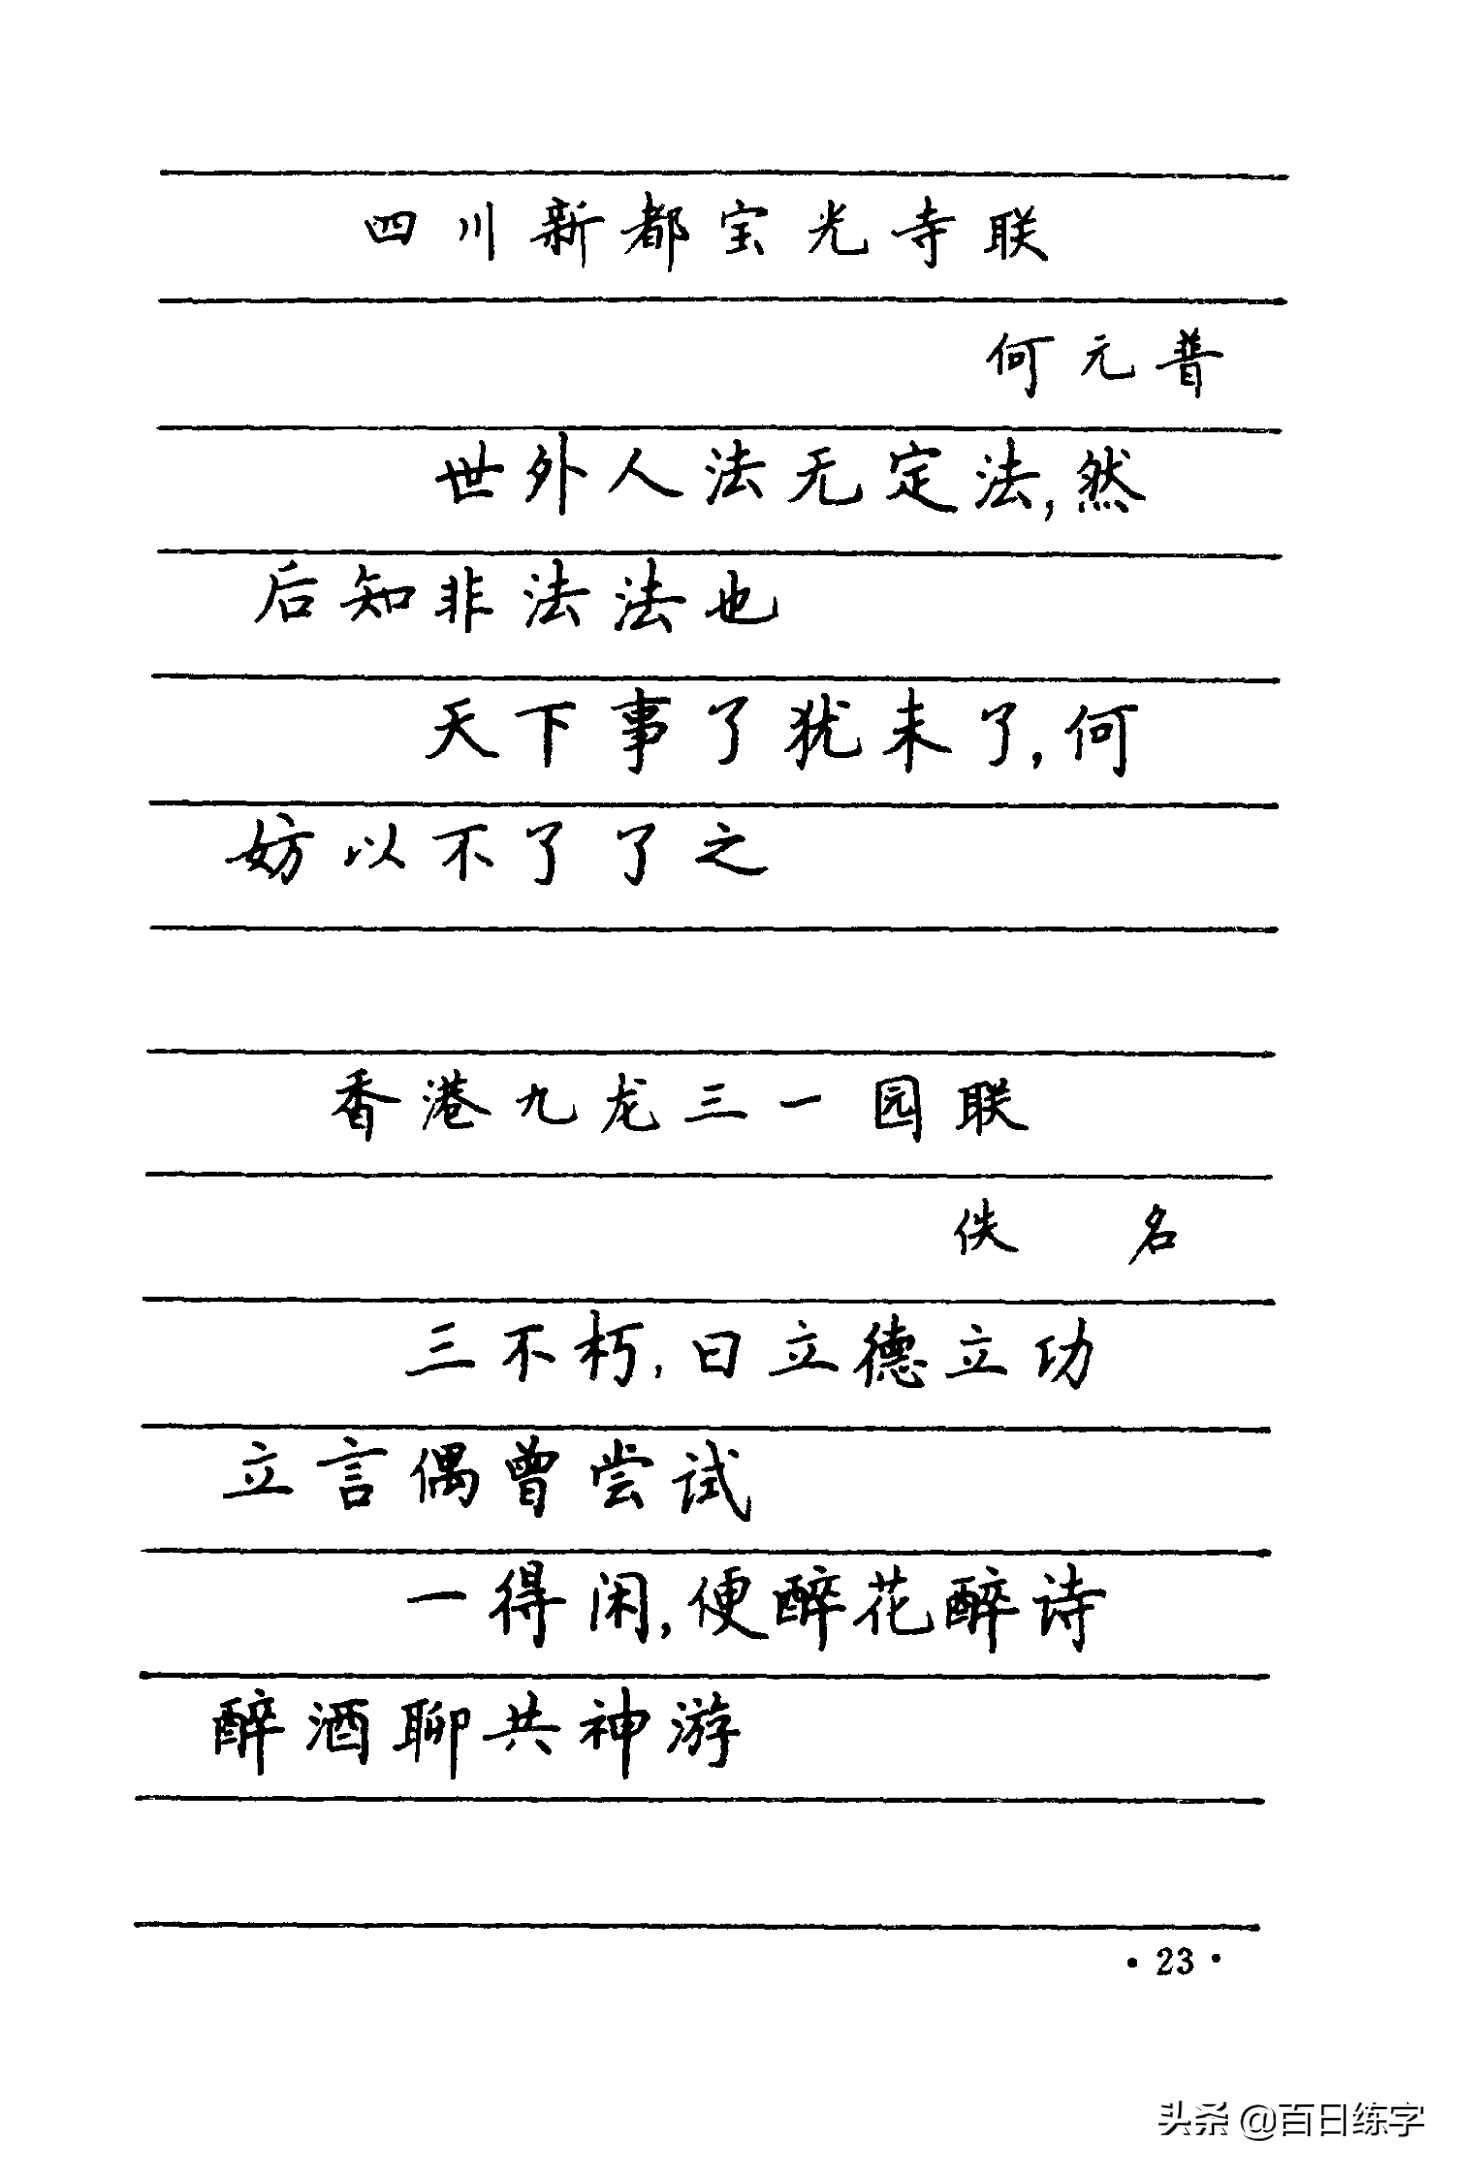 四川新都宝光寺联
何元普
世外人法无定法,然
后知非法法也
天下事了犹未了,何
妨以不了了之
香港九龙三一园联
佚 名
三不朽,曰立德立功
立言偶曾尝试
一得闲,便醉花醉诗
醉酒聊共神游
·23·
头条 @百日练字